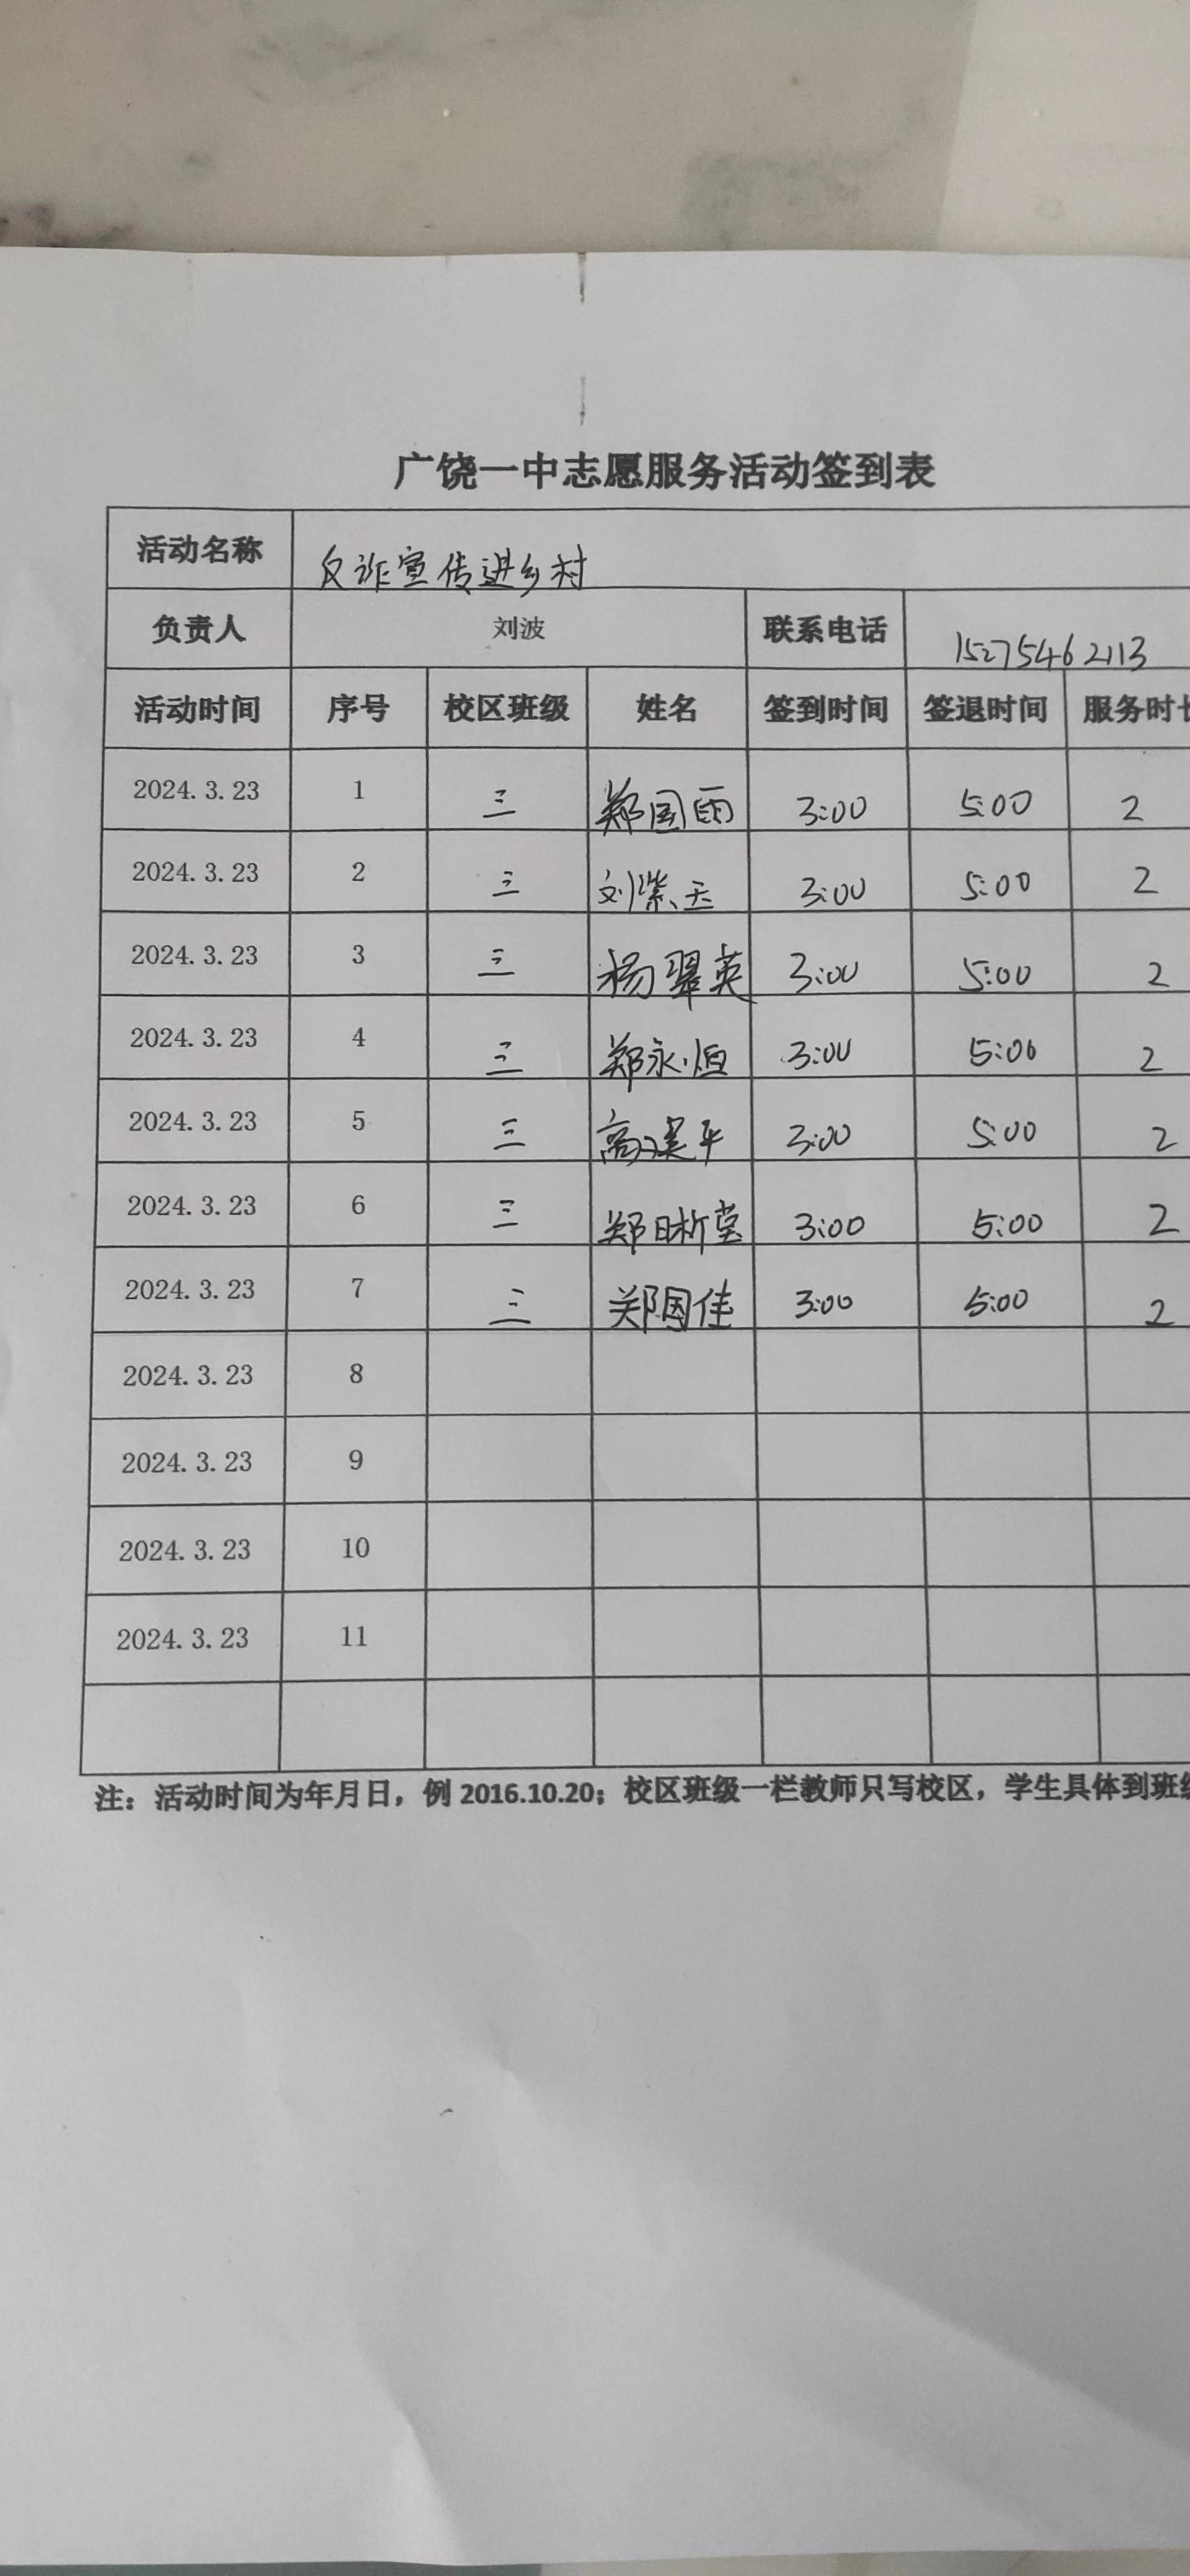 广饶一中志愿服务活动签到表
活动名称 反诈宣传进乡村
负责人 刘波 联系电话 15275462113
活动时间 序号 校区班级 姓名 签到时间 签退时间 服务时长
2024.3.23 1 三 郑国雨 3:00 5:00 2
2024.3.23 2 三 刘紫玉 3:00 5:00 2
2024.3.23 3 三 杨翠英 3:00 5:00 2
2024.3.23 4 三 郑永恒 3:00 5:00 2
2024.3.23 5 三 高建平 3:00 5:00 2
2024.3.23 6 三 郑晰莹 3:00 5:00 2
2024.3.23 7 三 郑国佳 3:00 5:00 2
2024.3.23 8
2024.3.23 9
2024.3.23 10
2024.3.23 11
注：活动时间为年月日，例 2016.10.20；校区班级一栏教师只写校区，学生具体到班级